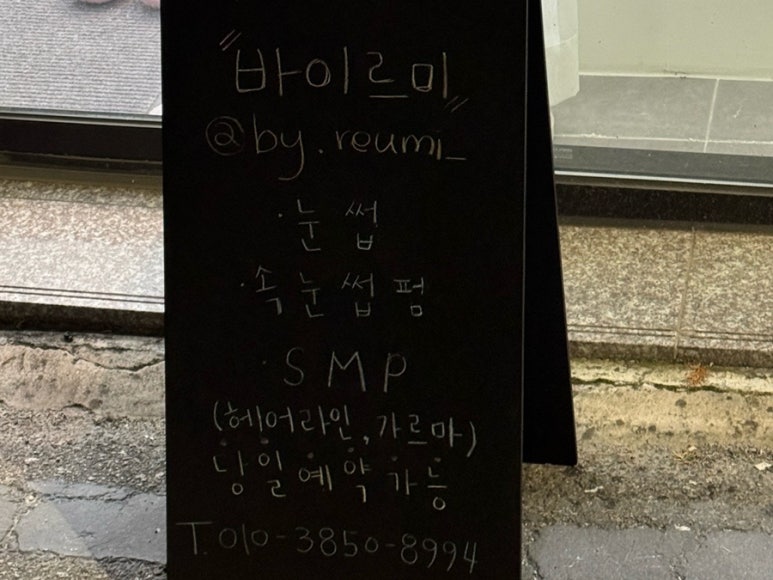 "바이르미"
@by.reumi_
·눈썹
·속눈썹펌
·SMP
(헤어라인, 가르마)
당일예약가능
T.010-3850-8994